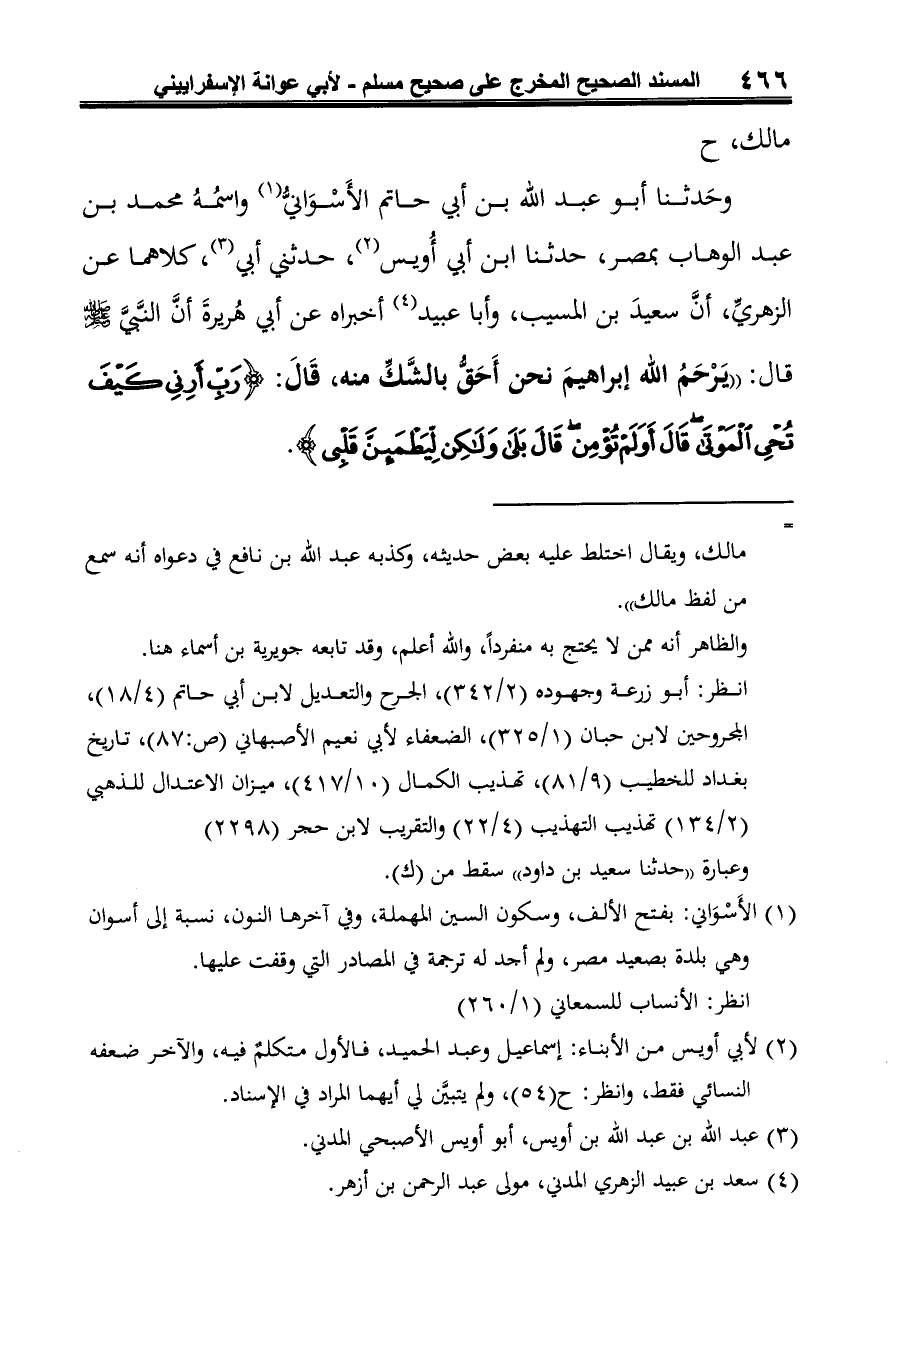 ٤٦٦ المسند الصحيح المخرج على صحيح مسلم - لأبي عوانة الإسفراييني
مالك، ح
وحَدثـنا أبـو عبـد الله بـن أبي حـاتم الأَسْـوَانيُّ(١) واسمُـهُ محمـد بـن
عبـد الوهـاب بمصـر، حدثـنا ابـن أبي أُويـس(٢)، حـدثني أبي(٣)، كلاهمـا عـن
الزهريِّ، أنَّ سعيدَ بن المسيب، وأبا عبيد(٤) أخبراه عن أبي هُريرةَ أنَّ النَّبيَّ ﷺ
قال: ((يَرْحَمُ الله إبراهيمَ نحن أَحَقُّ بالشَّكِّ منه، قَالَ: ﴿رَبِّ أَرِنِي كَيْفَ
تُحْيِ الْمَوْتَىٰ ۖ قَالَ أَوَلَمْ تُؤْمِن ۖ قَالَ بَلَىٰ وَلَٰكِن لِّيَطْمَئِنَّ قَلْبِي﴾.
=
مالك، ويقال اختلط عليه بعض حديثه، وكذبه عبد الله بن نافع في دعواه أنه سمع
من لفظ مالك)).
والظاهر أنه ممن لا يحتج به منفرداً، والله أعلم، وقد تابعه جويرية بن أسماء هنا.
انـظر: أبـو زرعـة وجهـوده (٣٤٢/٢)، الجـرح والتعـديل لابـن أبي حـاتم (١٨/٤)،
المجروحين لابـن حبـان (٣٢٥/١)، الضعفاء لأبي نعيم الأصبهاني (ص:٨٧)، تـاريخ
بغـداد للخطيـب (٨١/٩)، تهـذيب الكمـال (٤١٧/١٠)، ميـزان الاعتـدال للـذهبي
(١٣٤/٢) تهذيب التهذيب (٢٢/٤) والتقريب لابن حجر (٢٢٩٨)
وعبارة ((حدثنا سعيد بن داود)) سقط من (ك).
(١) الأَسْوَاني: بفتح الألف، وسكون السين المهملة، وفي آخرهـا النون، نسبة إلى أسوان
وهي بلدة بصعيد مصر، ولم أجد له ترجمة في المصادر التي وقفت عليها.
انظر: الأنساب للسمعاني (٢٦٠/١)
(٢) لأبي أويـس مـن الأبنـاء: إسماعيـل وعبـد الحميد، فـالأول متكلمٌ فيه، والآخـر ضعفه
النسائي فقط، وانظر: ح(٥٤)، ولم يتبيَّن لي أيهما المراد في الإسناد.
(٣) عبد الله بن عبد الله بن أويس، أبو أويس الأصبحي المدني.
(٤) سعد بن عبيد الزهري المدني، مولى عبد الرحمن بن أزهر.